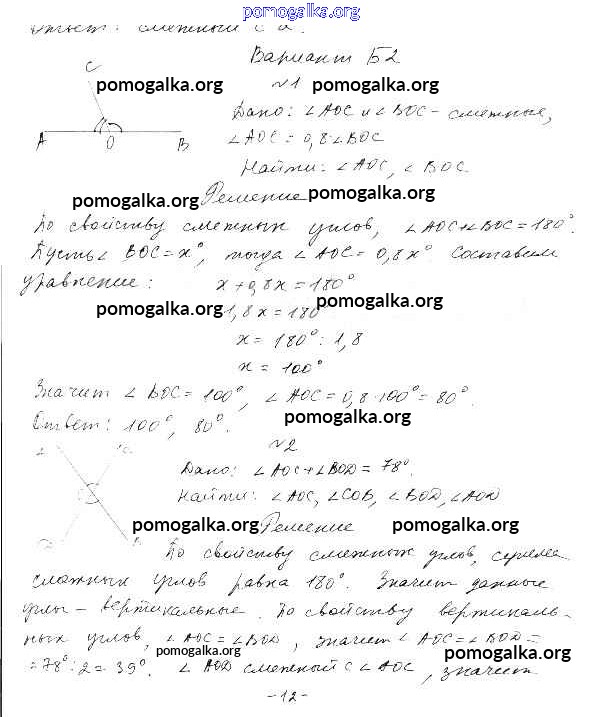 pomogalka.org
ответ: смежный с a.
Вариант Б2
pomogalka.org pomogalka.org
№1
C
A O B
Дано: ∠AOC и ∠BOC – смежные,
∠AOC = 0,8·∠BOC
Найти: ∠AOC, ∠BOC.
pomogalka.org Решение pomogalka.org
По свойству смежных углов, ∠AOC+∠BOC=180°.
Пусть ∠BOC=x°, тогда ∠AOC=0,8x° Составим
уравнение: x+0,8x=180°
pomogalka.org 1,8x=180° pomogalka.org
x = 180° : 1,8
x = 100°
pomogalka.org
Значит ∠BOC=100°, ∠AOC=0,8·100°=80°.
pomogalka.org
Ответ: 100°, 80°.
№2
Дано: ∠AOC+∠BOD=78°.
Найти: ∠AOC, ∠COB, ∠BOD, ∠AOD
pomogalka.org Решение pomogalka.org
По свойству смежных углов, сумма
смежных углов равна 180°. Значит данные
углы – вертикальные. По свойству вертикаль-
ных углов, ∠AOC=∠BOD, значит ∠AOC=∠BOD=
pomogalka.org pomogalka.org
=78°:2=39°. ∠AOD смежный с ∠AOC, значит
-12-